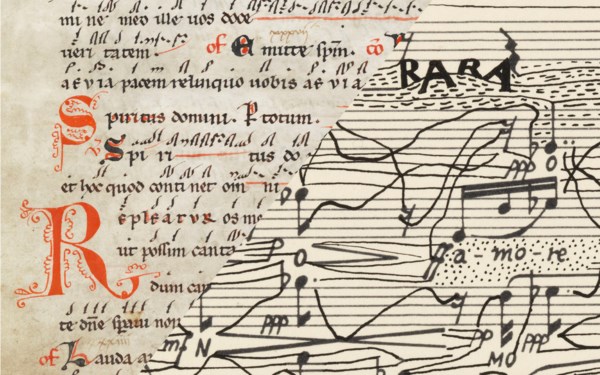 mi ne meo ille vos doce
veri tatem. of E mitte spm. co
aevia pacem relinquo vobis ae vi a
Spiritus domini. P totum.
Spi ri tus do
et hoc quod conti net om ni
Repleatur os me
ut possim canta
dum can
te dne
of Lauda
RARA
ppp O
O ff a - mo - re
ppp
mf N pp MO ppp